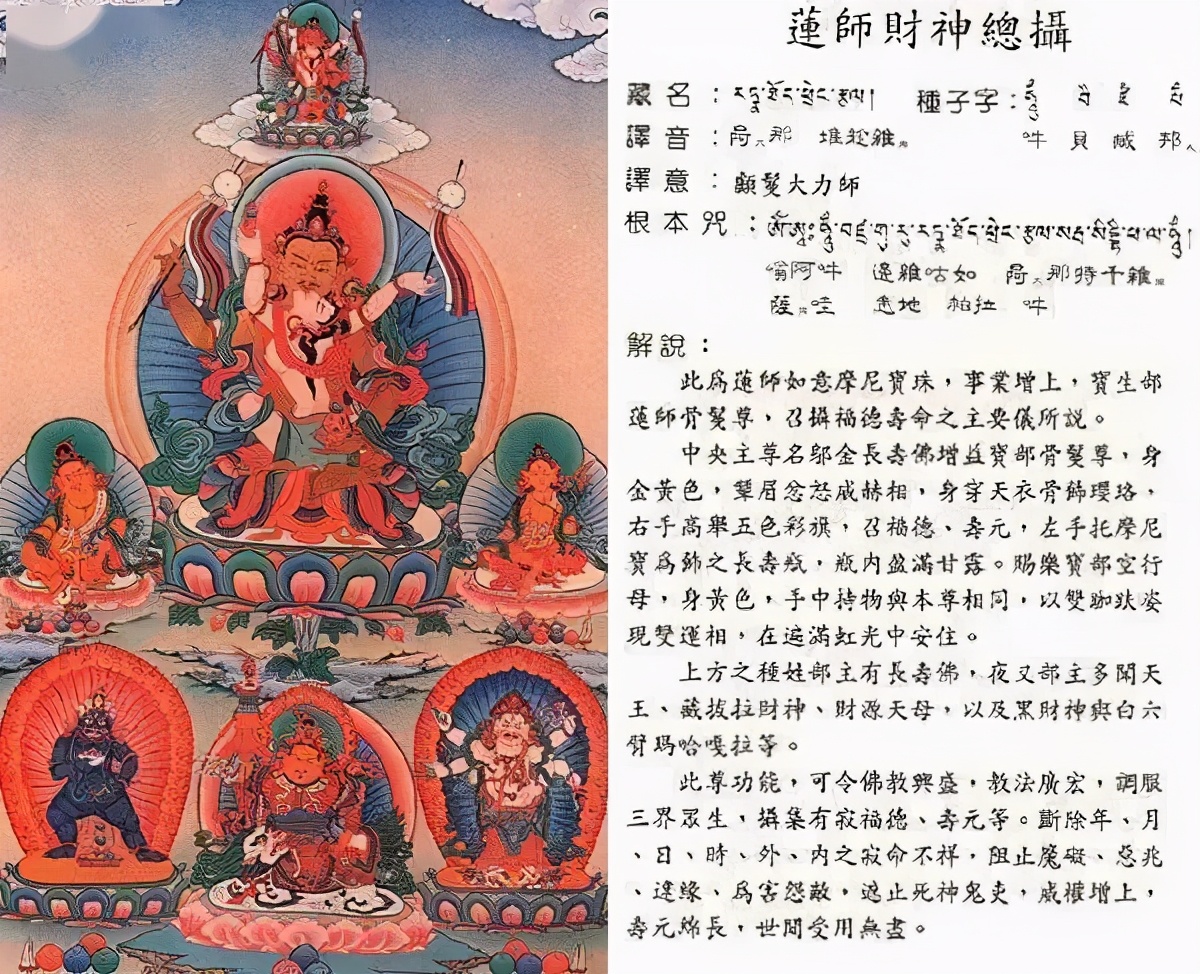 蓮師財神總攝
藏名：དབུ་ཐོད་ཕྲེང་རྩལ། 種子字：
譯音： 那 堆 雜 吽 貝 臧 邦
譯意：顱鬘大力師
根本咒：
嗡阿吽 邊雜咕如 那特千雜
薩 哇 悉地 帕拉 吽
解說：
此為蓮師如意摩尼寶珠，事業增上，寶生部
蓮師骨鬘尊，召攝福德壽命之主要儀所說。
中央主尊名鄔金長壽佛增益寶部骨鬘尊，身
金黃色，顰眉忿怒威赫相，身穿天衣骨飾瓔珞，
右手高舉五色彩旗，召福德、壽元，左手托摩尼
寶為飾之長壽瓶，瓶內盈滿甘露。賜樂寶部空行
母，身黃色，手中持物與本尊相同，以雙跏趺姿
現雙運相，在遍滿虹光中安住。
上方之種姓部主有長壽佛，夜叉部主多聞天
王、藏拔拉財神、財源天母，以及黑財神與白六
臂瑪哈嘎拉等。
此尊功能，可令佛教興盛，教法廣宏，調服
三界眾生，攝集有寂福德、壽元等。斷除年、月
、日、時、外、內之寂命不祥，阻止魔礙、惡兆
、違緣、為害怨敵，遮止死神鬼吏，威權增上，
壽元綿長，世間受用無盡。